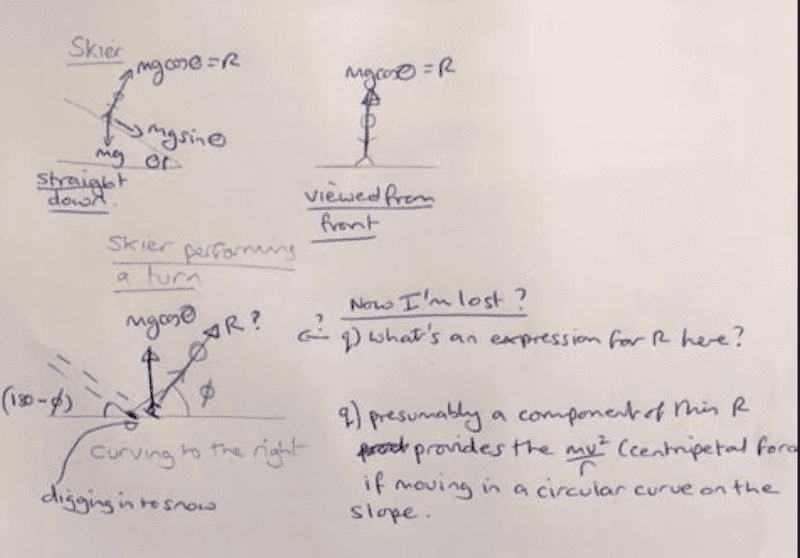 Skier
mgcosθ = R
mgsinθ
mg
θ
straight
down.
mgcosθ = R
viewed from
front
Skier performing
a turn
mgcosθ
R ?
ϕ
(180-ϕ)
curving to the right
digging into snow
Now I'm lost ?
?
q) what's an expression for R here?
q) presumably a component of this R
provides the mv²/r (centripetal force
if moving in a circular curve on the
slope.